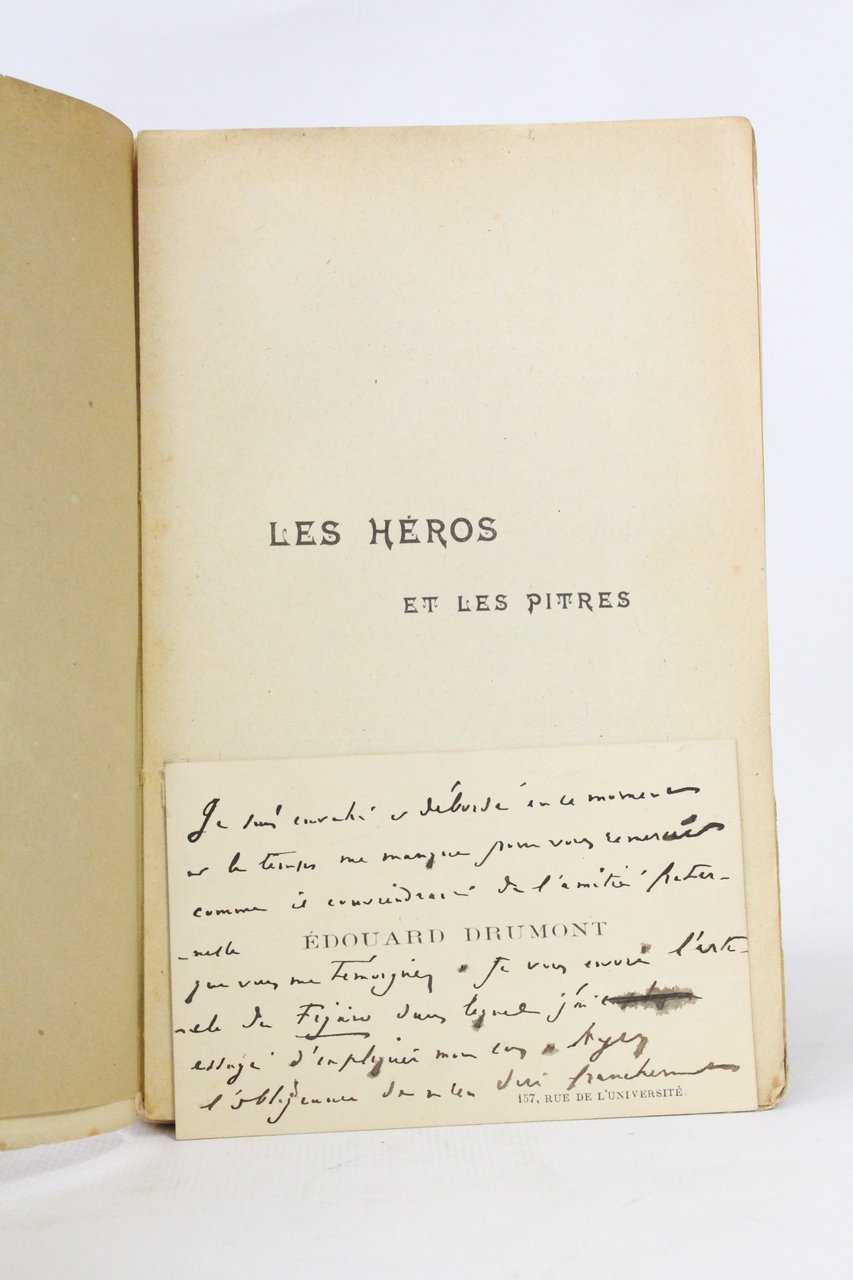 LES HÉROS
ET LES PITRES
Je suis envahi et débordé en ce moment
et le temps me manque pour vous remercier
comme il conviendrait de l'amitié frater-
-nelle
ÉDOUARD DRUMONT
que vous me témoignez. Je vous envoie l'arti-
-cle du Figaro dans lequel j'ai
essayé d'expliquer mon cas. Ayez
l'obligeance de me dire franchement
157, RUE DE L'UNIVERSITÉ